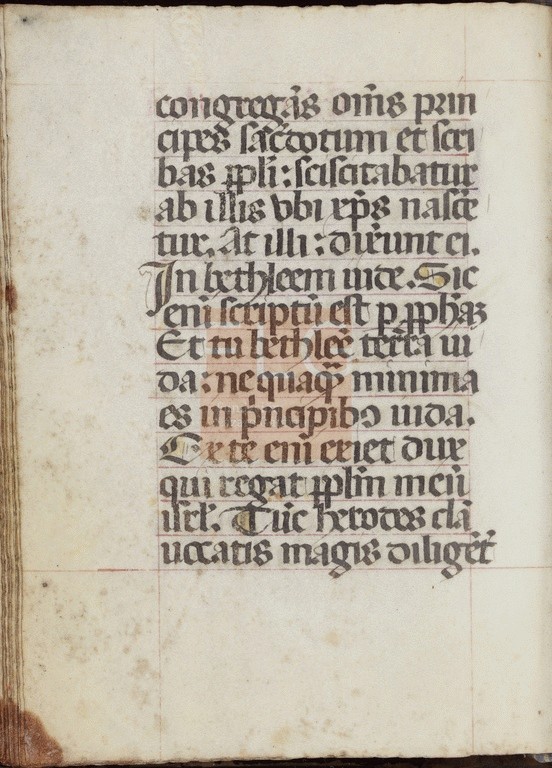 congregās om̄s prin
cipes sac̄dotum et scri
bas pp̄li : sciscitabatur
ab illis vbi xp̄s nasce
tur. At illi : dixerunt ei.
In bethleem iude. Sic
eni᷒ scriptū est p pphāz
Et tu bethleē terra iu
da : ne quaq̄ minima
es in p̄ncipibꝯ iuda.
Ex te eni exiet dux
qui regat pp̄lm meū
isrl̄. Tūc herodes clā
uocatis magis diligēt̄